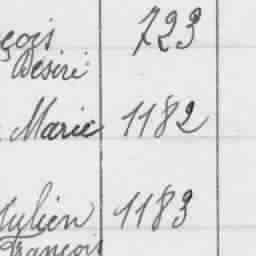 çois 723
Désiré
Marie 1182
Julien 1183
François